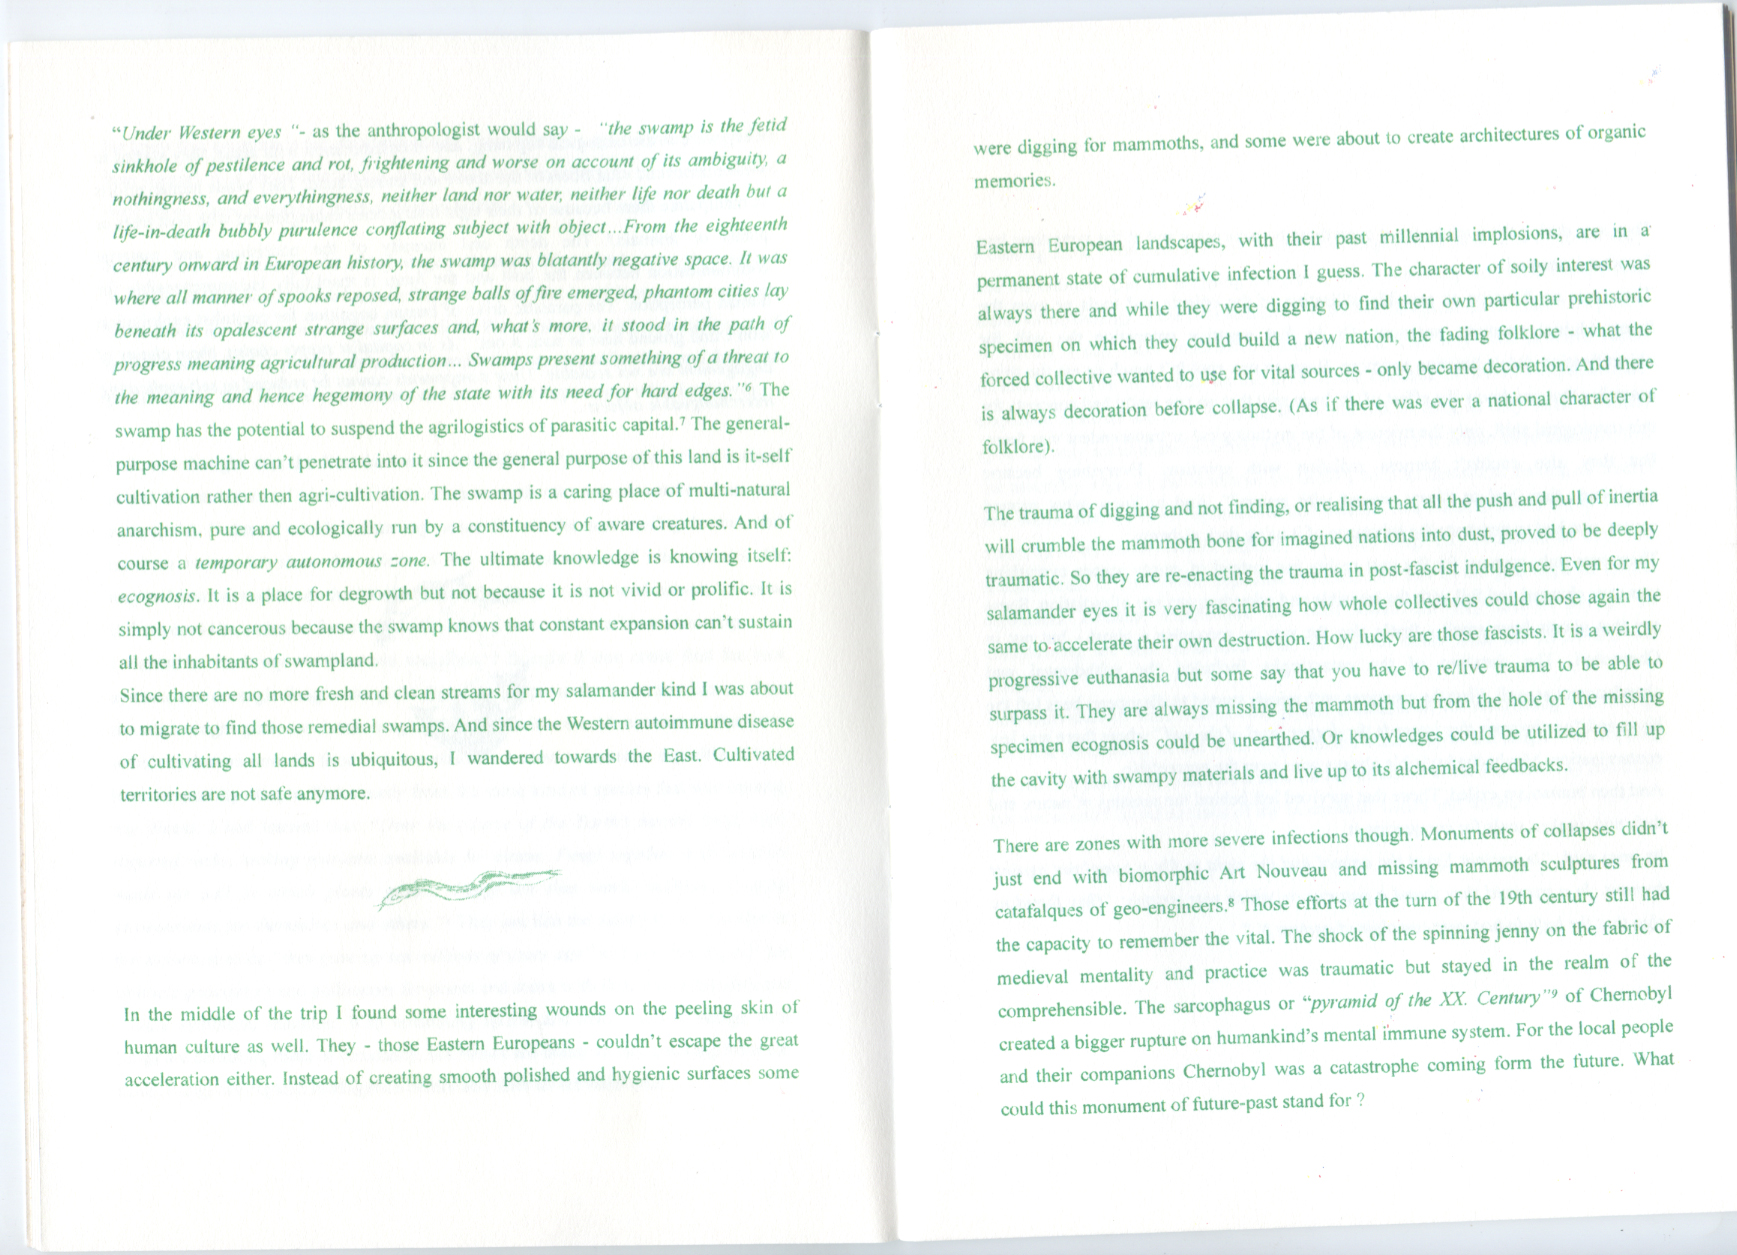 “Under Western eyes "- as the anthropologist would say - "the swamp is the fetid
sinkhole of pestilence and rot, frightening and worse on account of its ambiguity, a
nothingness, and everythingness, neither land nor water, neither life nor death but a
life-in-death bubbly purulence conflating subject with object...From the eighteenth
century onward in European history, the swamp was blatantly negative space. It was
where all manner of spooks reposed, strange balls of fire emerged, phantom cities lay
beneath its opalescent strange surfaces and, what's more, it stood in the path of
progress meaning agricultural production... Swamps present something of a threat to
the meaning and hence hegemony of the state with its need for hard edges."⁶ The
swamp has the potential to suspend the agrilogistics of parasitic capital.⁷ The general-
purpose machine can't penetrate into it since the general purpose of this land is it-self
cultivation rather then agri-cultivation. The swamp is a caring place of multi-natural
anarchism, pure and ecologically run by a constituency of aware creatures. And of
course a temporary autonomous zone. The ultimate knowledge is knowing itself:
ecognosis. It is a place for degrowth but not because it is not vivid or prolific. It is
simply not cancerous because the swamp knows that constant expansion can't sustain
all the inhabitants of swampland.
Since there are no more fresh and clean streams for my salamander kind I was about
to migrate to find those remedial swamps. And since the Western autoimmune disease
of cultivating all lands is ubiquitous, I wandered towards the East. Cultivated
territories are not safe anymore.
In the middle of the trip I found some interesting wounds on the peeling skin of
human culture as well. They - those Eastern Europeans - couldn't escape the great
acceleration either. Instead of creating smooth polished and hygienic surfaces some
were digging for mammoths, and some were about to create architectures of organic
memories.
Eastern European landscapes, with their past millennial implosions, are in a
permanent state of cumulative infection I guess. The character of soily interest was
always there and while they were digging to find their own particular prehistoric
specimen on which they could build a new nation, the fading folklore - what the
forced collective wanted to use for vital sources - only became decoration. And there
is always decoration before collapse. (As if there was ever a national character of
folklore).
The trauma of digging and not finding, or realising that all the push and pull of inertia
will crumble the mammoth bone for imagined nations into dust, proved to be deeply
traumatic. So they are re-enacting the trauma in post-fascist indulgence. Even for my
salamander eyes it is very fascinating how whole collectives could chose again the
same to accelerate their own destruction. How lucky are those fascists. It is a weirdly
progressive euthanasia but some say that you have to re/live trauma to be able to
surpass it. They are always missing the mammoth but from the hole of the missing
specimen ecognosis could be unearthed. Or knowledges could be utilized to fill up
the cavity with swampy materials and live up to its alchemical feedbacks.
There are zones with more severe infections though. Monuments of collapses didn't
just end with biomorphic Art Nouveau and missing mammoth sculptures from
catafalques of geo-engineers.⁸ Those efforts at the turn of the 19th century still had
the capacity to remember the vital. The shock of the spinning jenny on the fabric of
medieval mentality and practice was traumatic but stayed in the realm of the
comprehensible. The sarcophagus or “pyramid of the XX. Century"⁹ of Chernobyl
created a bigger rupture on humankind's mental immune system. For the local people
and their companions Chernobyl was a catastrophe coming form the future. What
could this monument of future-past stand for ?